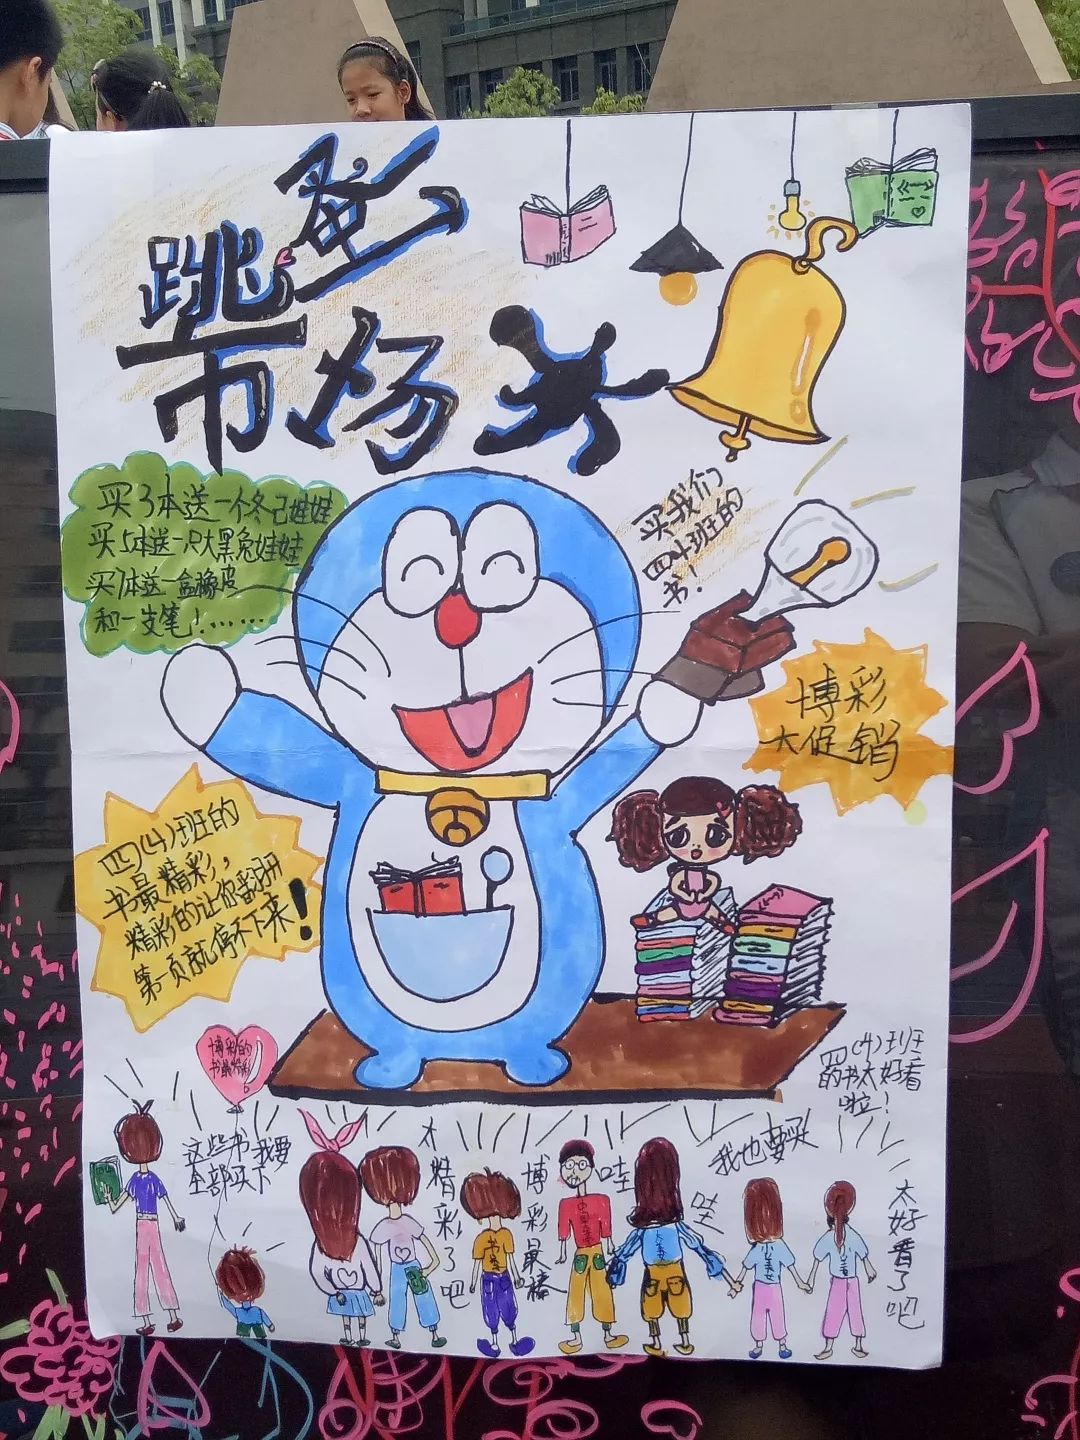 跳蚤
市场
买3本送一个冬己娃娃
买5本送一只大黑兔娃娃
买7本送一盒橡皮
和一支笔！……
买我们
四(4)班的
书！
博彩
大促销
四(4)班的
书最精彩，
精彩的让你翻开
第一页就停不下来！
四(4)班
的书太好看
啦！
博彩的
这些书我要
全部买下
太精彩了吧
博彩最棒
哇
哇
我也要买
太好看了吧